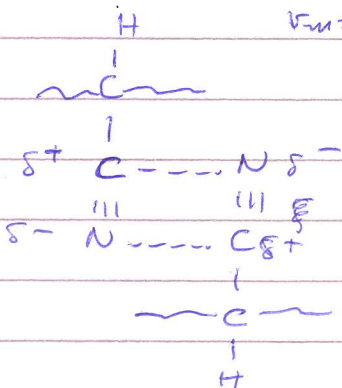 H
C
δ+ C ---- N δ-
||| |||
δ- N ---- C δ+
C
H